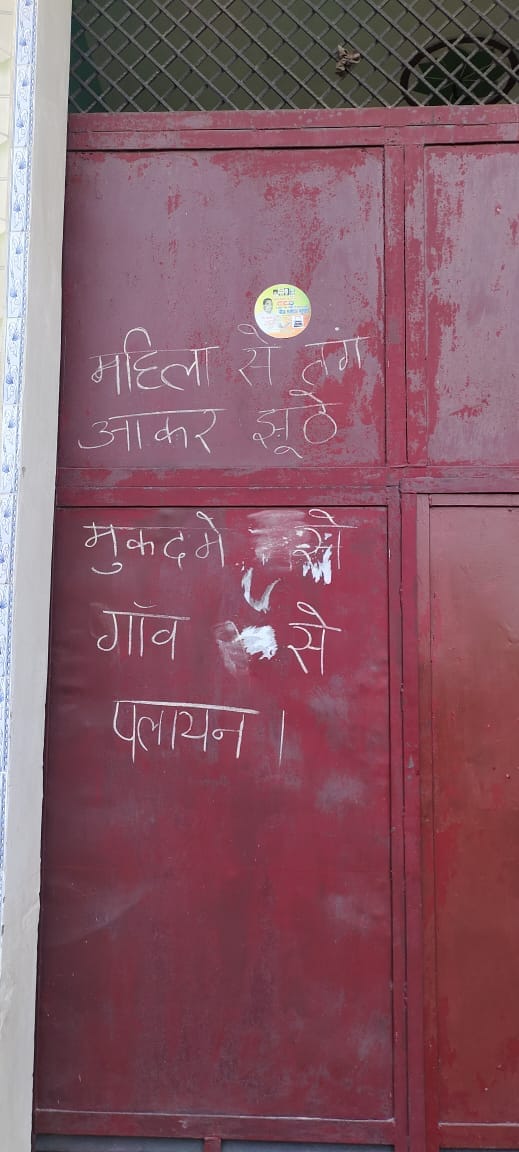 महिला से तंग
आकर झूठे
मुकदमे से
गाँव से
पलायन ।